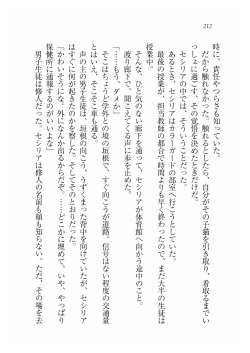 212
時に、責任やつらさも知っていた。
だから触れなかった。触れるとしたら、自分がその子猫を引き取り、看取るまでい
っしょに過ごす、その覚悟を決めたときだけだ。
セシリアの中では、そうなっていた。
あるとき、セシリアはカラーガードの部室へ行こうとしていた。
最後の授業が、担当教師の都合で時間よりも早く終わったので、まだ大半の生徒は
授業中。
そんな、ひと気のない廊下を通って、セシリアが体育館へ向かう途中のこと。
渡り廊下で、聞こえてくる声に歩を止めた。
「……もう、ダメか」
そこはちょうど学外との境の垣根で、すぐ向こうが道路。信号はない程度の交通量
とはいえ、そこそこ車も通る。
声の主の男子生徒は、垣根の向こう、うずくまった背中を向けていたが、セシリア
はすぐに何が起こったのかを察した。そしてそのとおりだった。
「かわいそうにな。外になんか出るからだぞ。……どこかに埋めて、いや、やっぱり
保健所に通報するのがいいよな」
男子生徒は修人だった。セシリアは修人の名前も顔も知らない。ただ、その場を去